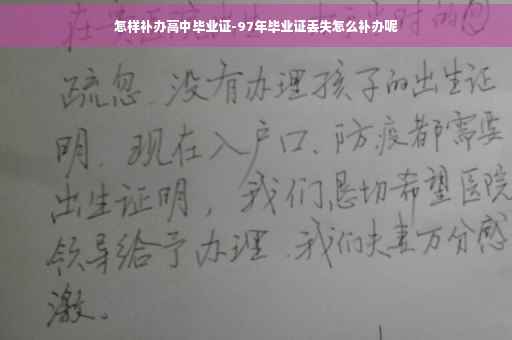 怎样补办高中毕业证-97年毕业证丢失怎么补办呢
疏忽.没有办理孩子的出生证
明.现在入户口、防疫都需要
出生证明，我们恳切希望医院
领导给予办理.我们夫妻万分感
激。